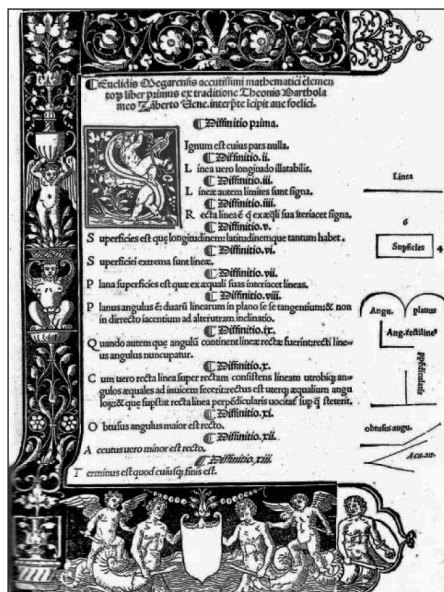 ¶Euclidis Megarensis accutissimi mathematici elemen
torꝝ liber primus ex traditione Theonis Bartholα
meo Zāberto Uene. interp̄te īcipit auc foelici.
¶Diffinitio prima.
S Ignum est cuius pars nulla.
¶Diffinitio.ii.
L inea uero longitudo illatabilis.
¶Diffinitio.iii.
L ineæ autem limites sunt signa.
¶Diffinitio.iiii.
R ecta linea ē q̄ ex æq̄li sua iteriacet signa.
¶Diffinitio.v.
S uperficies est que longitudinem: latitudinemque tantum habet.
¶Diffinitio.vi.
S uperficiei extrema sunt lineæ.
¶Diffinitio.vii.
P lana superficies est quæ ex æquali suas interiacet lineas.
¶Diffinitio.viii.
P lanus angulus ē: duarū linearum in plano se se tangentium: & non
in dirrecto iacentium ad alterutram inclinatio.
¶Diffinitio.ix.
Q uando autem que angulū continent lineæ rectæ fuerint: recti line
us angulus nuncupatur.
¶Diffinitio.x.
C um uero recta linea super rectam consistens lineam utrobiq; an-
gulos æquales ad inuicem fecerit: rectus est uterq; æqualium angu
loꝝ: & que supstat recta linea perpēdicularis uocitaƭ sup q̄ steterit.
¶Diffinitio.xi.
O btusus angulus maior est recto.
¶Diffinitio.xii.
A ccutus uero minor est recto.
¶Diffinitio.xiii.
T erminus est quod cuiusq; finis est.
Linea
6
Supficies 4
Angu. planus
Ang. rectiline⁹
ppēdicularis
obtusus augu.
Acu. an.